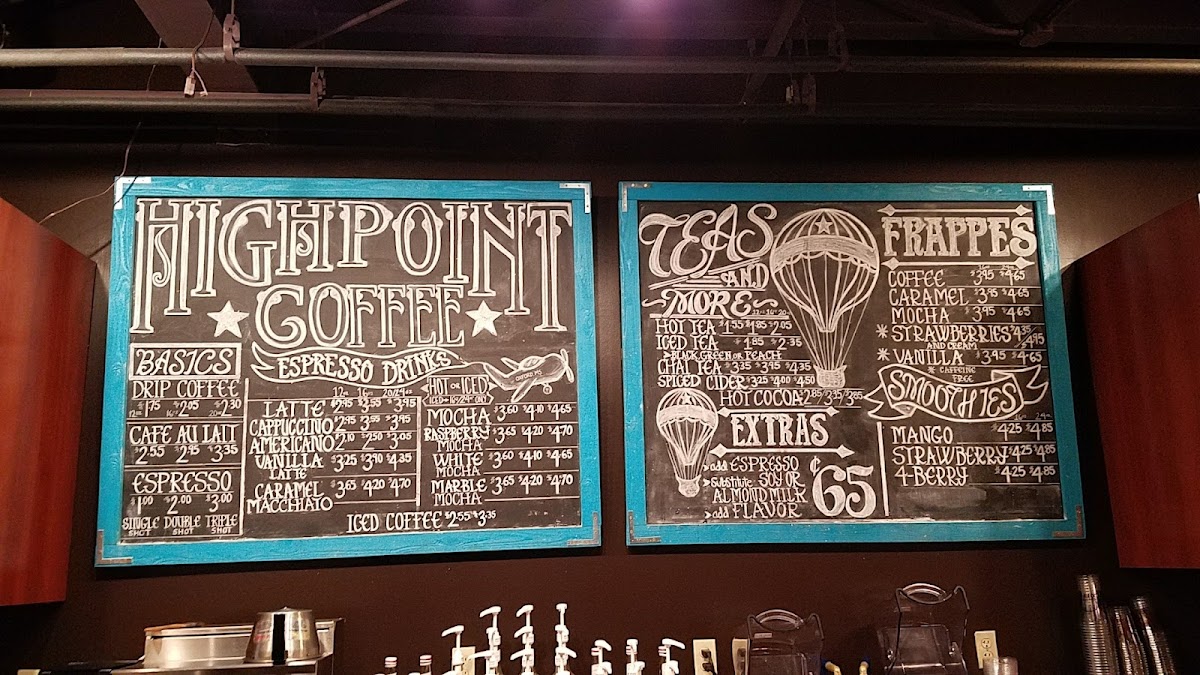 HIGHPOINT
COFFEE
BASICS
DRIP COFFEE
$1.75 $2.05 $2.30
12oz 16oz 20oz
CAFE AU LAIT
$2.55 $2.95 $3.35
ESPRESSO
$1.00 $2.00 $3.00
SINGLE DOUBLE TRIPLE
SHOT SHOT SHOT
ESPRESSO DRINKS
LATTE $2.95 $3.55 $3.95
CAPPUCCINO $2.95 $3.55 $3.95
AMERICANO $2.10 $2.50 $3.05
VANILLA $3.25 $3.90 $4.35
LATTE
CARAMEL $3.65 $4.20 $4.70
MACCHIATO
HOT OR ICED
MOCHA $3.60 $4.10 $4.65
RASPBERRY $3.65 $4.20 $4.70
MOCHA
WHITE $3.60 $4.10 $4.65
MOCHA
MARBLE $3.65 $4.20 $4.70
MOCHA
ICED COFFEE $2.55 $3.35
TEAS
AND
MORE
12oz 16oz 20
HOT TEA $1.55 $1.85 $2.05
ICED TEA $1.85 $2.35
BLACK, GREEN OR PEACH
CHAI TEA $3.35 $3.95 $4.35
SPICED CIDER $3.25 $4.00 $4.50
HOT COCOA $2.85 $3.35 $3.85
EXTRAS
add ESPRESSO
substitute SOY OR
ALMOND MILK
add FLAVOR
¢65
FRAPPES
COFFEE $3.95 $4.65
CARAMEL $3.95 $4.65
MOCHA $3.95 $4.65
*STRAWBERRIES $4.35 $4.95
AND CREAM
*VANILLA $3.95 $4.65
* CAFFEINE
FREE
SMOOTHIES
MANGO $4.25 $4.85
STRAWBERRY $4.25 $4.85
4-BERRY $4.25 $4.85